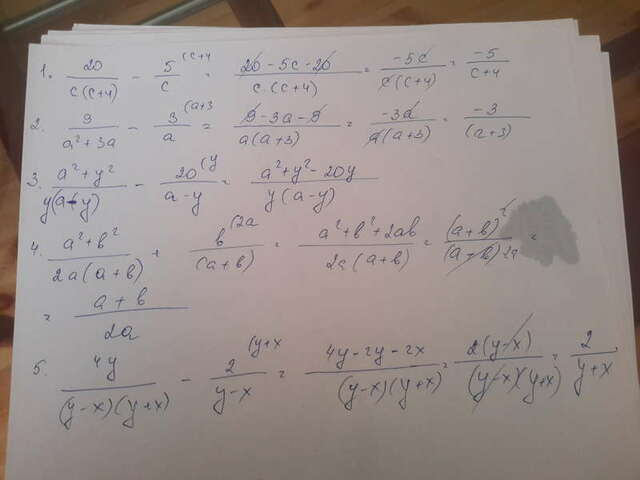 1. 20/(c(c+4)) - 5/c (c+4 = (20-5c-20)/(c(c+4)) = -5c/(c(c+4)) = -5/(c+4)
2. 9/(a²+3a) - 3/a (a+3 = (9-3a-9)/(a(a+3)) = -3a/(a(a+3)) = -3/(a+3)
3. (a²+y²)/(y(a-y)) - 20/(a-y) (y = (a²+y²-20y)/(y(a-y))
4. (a²+в²)/(2a(a+в)) + в/(a+в) (2a = (a²+в²+2aв)/(2a(a+в)) = (a+в)²/((a+в)2a) =
= (a+в)/2a
5. 4y/((y-x)(y+x)) - 2/(y-x) (y+x = (4y-2y-2x)/((y-x)(y+x)) = 2(y-x)/((y-x)(y+x)) = 2/(y+x)